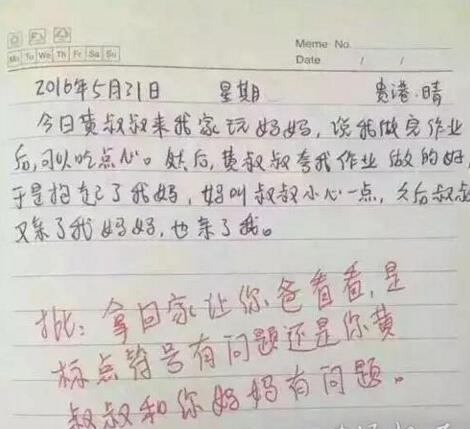 Meme No.
Mo Tu We Th Fr Sa Su
Date / /
2016年5月31日 星期 贵港·晴
今日黄叔叔来我家玩妈妈，说我做完作业
后，可以吃点心。然后，黄叔叔夸我作业做的好，
于是抱起了我妈，妈叫叔叔小心一点，久后叔叔
又亲了我妈妈，也亲了我。
批：拿回家让你爸看看，是
标点符号有问题还是你黄
叔叔和你妈妈有问题。